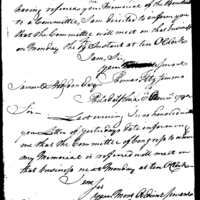 having referred your Memorial of the
to a Committee, I am directed to inform you
that the Committee will meet on that business
on Monday the Instant at ten OClock
I am, Sir,
your servant
Samuel Esq Thomas Fitzsimons
Philadelphia 3
Sir Last evening I was handed
your Letter of yesterdays date informing
me that the Committee of Congress to whom
my Memorial is referred will meet on
that business on Monday at ten OClock
I am
Sir
your most Obedient servant